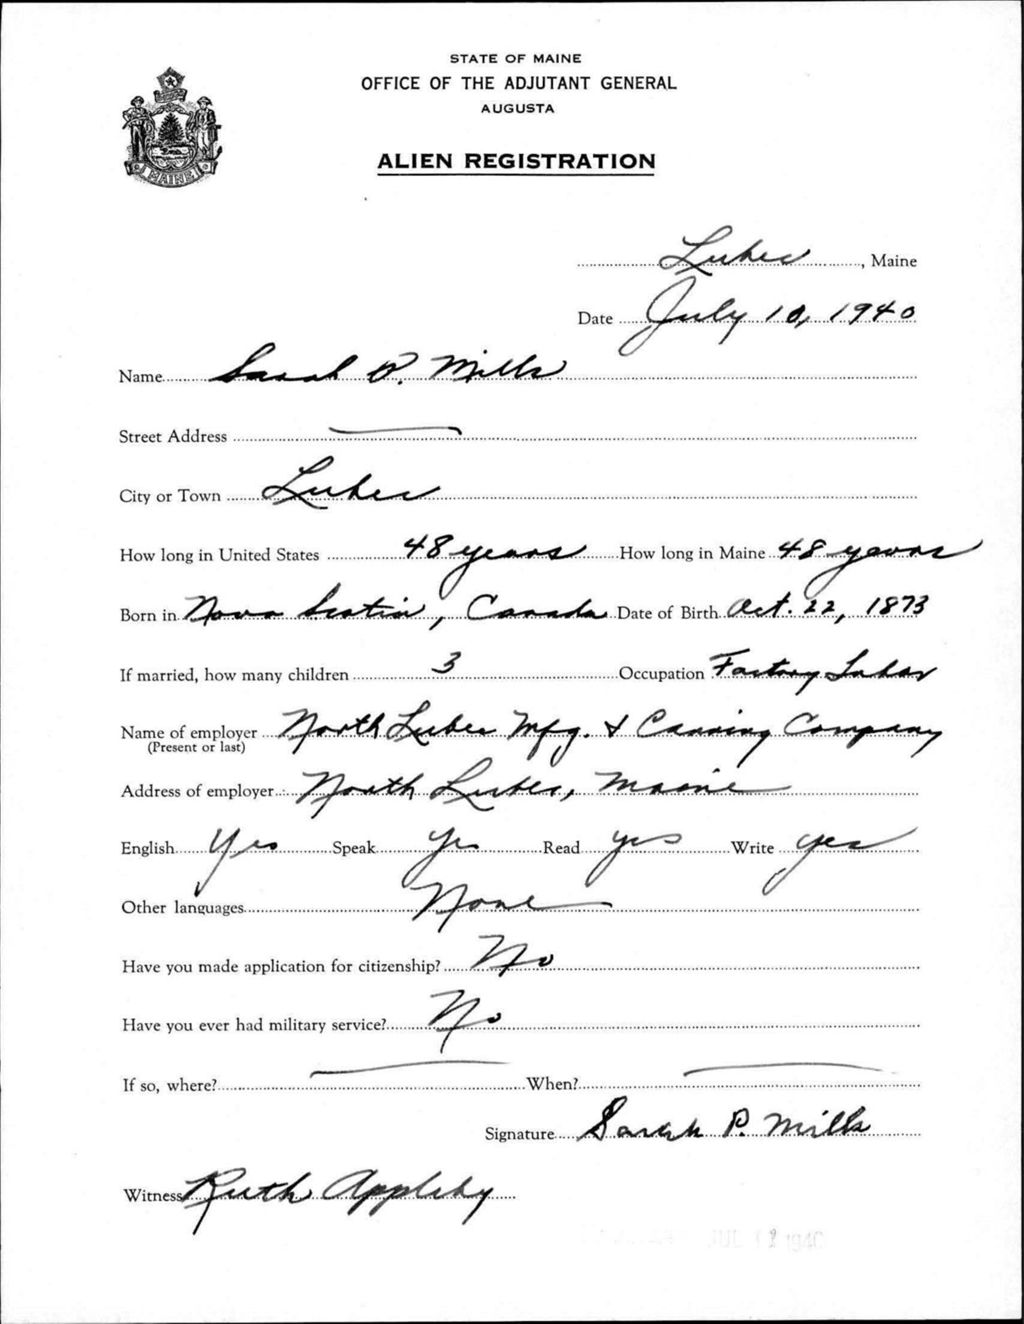 STATE OF MAINE
OFFICE OF THE ADJUTANT GENERAL
AUGUSTA
ALIEN REGISTRATION
MAINE
Lubec, Maine
Date July 10, 1940
Name Sarah P. Mills
Street Address —
City or Town Lubec
How long in United States 48 years How long in Maine 48 years
Born in Nova Scotia, Canada Date of Birth Oct. 22, 1873
If married, how many children 3 Occupation Factory Labor
Name of employer North Lubec Mfg. & Canning Company
(Present or last)
Address of employer North Lubec, Maine
English Yes Speak Yes Read yes Write yes
Other languages None
Have you made application for citizenship? No
Have you ever had military service? No
If so, where? — When? —
Signature Sarah P. Mills
Witness Ruth Appleby
JUL 12 1940